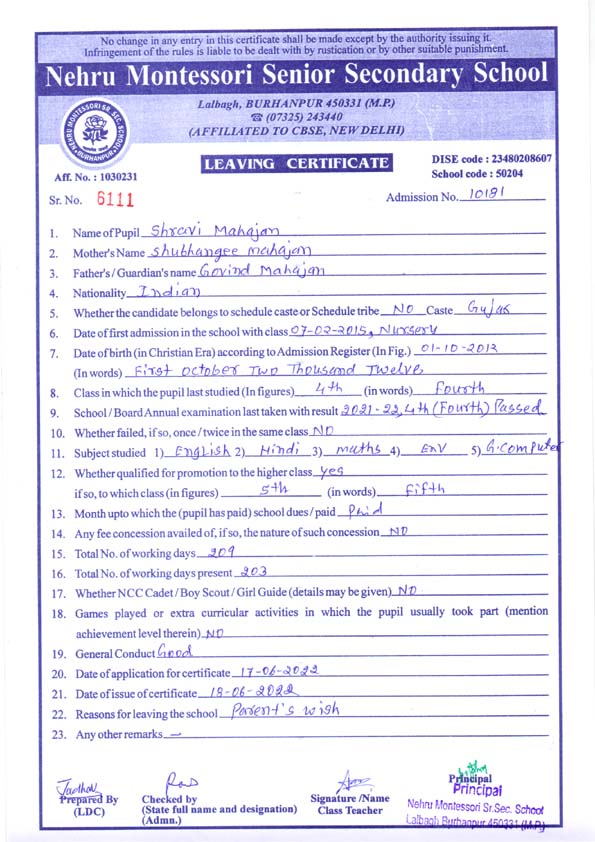 No change in any entry in this certificate shall be made except by the authority issuing it.
Infringement of the rules is liable to be dealt with by rustication or by other suitable punishment.
Nehru Montessori Senior Secondary School
Lalbagh, BURHANPUR 450331 (M.P.)
☎ (07325) 243440
(AFFILIATED TO CBSE, NEW DELHI)
NEHRU MONTESSORI SR. SEC. SCHOOL
BURHANPUR
LEAVING CERTIFICATE
DISE code : 23480208607
School code : 50204
Aff. No. : 1030231
Sr. No. 6111
Admission No. 10181
1. Name of Pupil Shravi Mahajan
2. Mother's Name Shubhangee mahajan
3. Father's / Guardian's name Govind Mahajan
4. Nationality Indian
5. Whether the candidate belongs to schedule caste or Schedule tribe NO Caste Gujar
6. Date of first admission in the school with class 07-02-2015, Nursery
7. Date of birth (in Christian Era) according to Admission Register (In Fig.) 01-10-2012
(In words) First October Two Thousand Twelve
8. Class in which the pupil last studied (In figures) 4th (in words) Fourth
9. School / Board Annual examination last taken with result 2021-22, 4th (Fourth) Passed
10. Whether failed, if so, once / twice in the same class NO
11. Subject studied 1) English 2) Hindi 3) maths 4) Env 5) G.Computer
12. Whether qualified for promotion to the higher class yes
if so, to which class (in figures) 5th (in words) Fifth
13. Month upto which the (pupil has paid) school dues / paid Paid
14. Any fee concession availed of, if so, the nature of such concession NO
15. Total No. of working days 209
16. Total No. of working days present 203
17. Whether NCC Cadet / Boy Scout / Girl Guide (details may be given) NO
18. Games played or extra curricular activities in which the pupil usually took part (mention
achievement level therein) NO
19. General Conduct Good
20. Date of application for certificate 17-06-2022
21. Date of issue of certificate 18-06-2022
22. Reasons for leaving the school Parent's wish
23. Any other remarks —
Jadhav
Prepared By
(LDC)
Checked by
(State full name and designation)
(Admn.)
Signature /Name
Class Teacher
Principal
Principal
Nehru Montessori Sr.Sec. School
Lalbagh Burhanpur 450331 (M.P.)